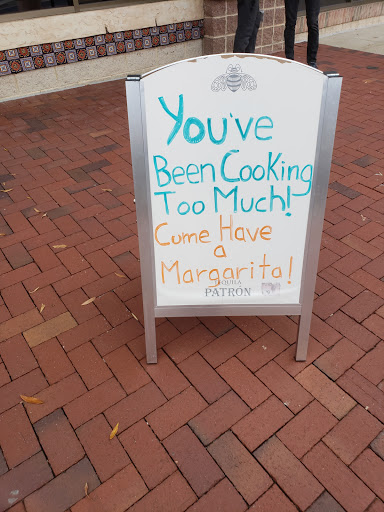 You've
Been Cooking
Too Much!
Come Have
a
Margarita!
TEQUILA
PATRÓN